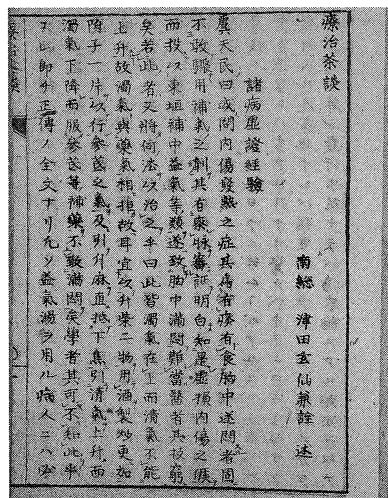 療治茶談
南総 津田玄仙兼詮 述
諸病虚證經驗
龔天民曰或問内傷發熱之症其傷有痰有食胸中迷悶者固
不敢驟用補氣之劑其有察脉審証明白知是虚損内傷之候
而投以東垣補中益氣等類遂致胸中滿悶難當醫者其技窮
矣若此者又將何法以治之乎曰此皆濁氣在上而清氣不能
上升故濁氣與藥氣相拒故耳宜以升柴二物用酒製炒更加
附子一片以行參芪之氣及引升麻直抵下焦引清氣上升而
濁氣下降而服參芪等補藥不致滿悶矣學者其可不知此乎
正傳ノ全文ナリ凡ソ益氣湯ヲ用ル病人ニハ必